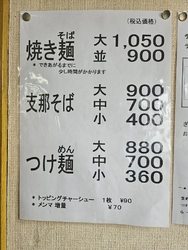 (税込価格)
そば
焼き麺 大 1,050
並 900
*できあがるまでに
少し時間がかかります
支那そば 大 900
中 700
小 400
めん
つけ麺 大 880
中 700
小 360
• トッピングチャーシュー 1枚 ¥90
• メンマ 増量 ¥70